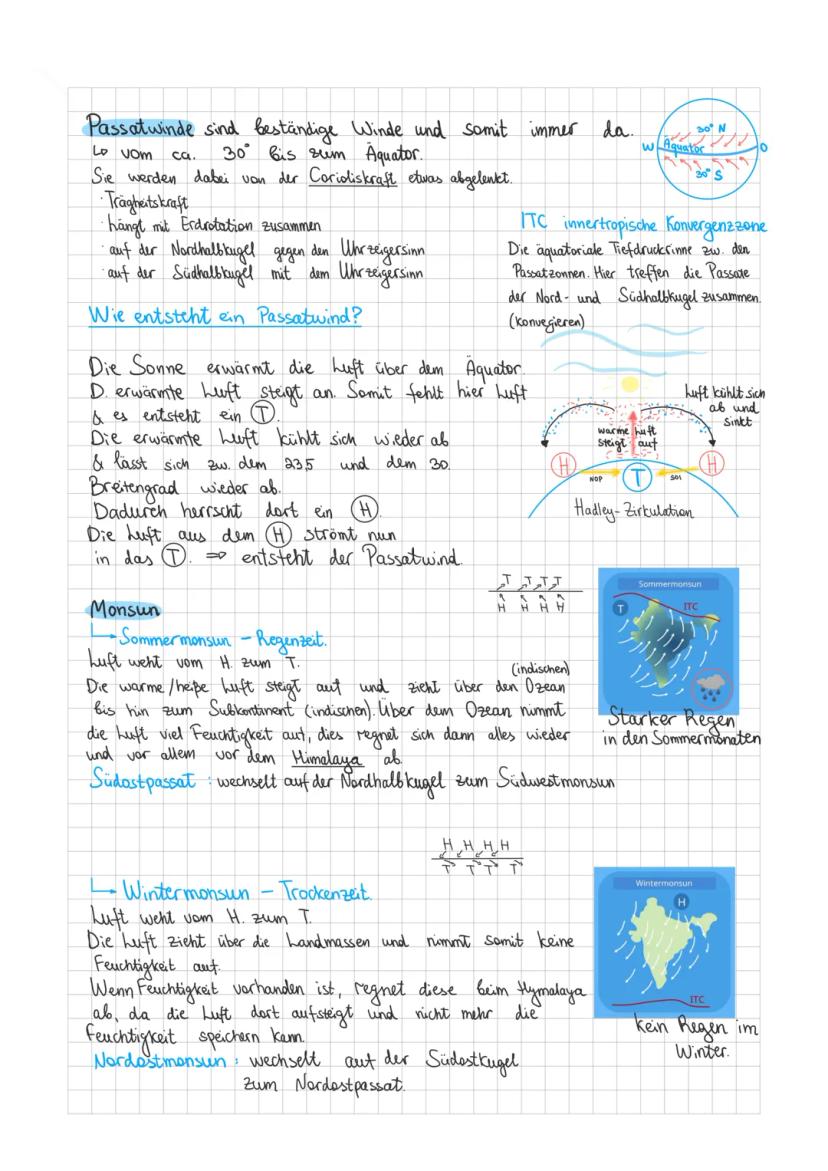 Passatwinde sind beständige Winde und somit immer da.
↳ vom ca. 30° bis zum Äquator.
Sie werden dabei von der Corioliskraft etwas abgelenkt.
· Trägheitskraft
· hängt mit Erdrotation zusammen
· auf der Nordhalbkugel gegen den Uhrzeigersinn
· auf der Südhalbkugel mit dem Uhrzeigersinn
30° N
W Äquator O
30° S
ITC innertropische Konvergenzzone
Die äquatoriale Tiefdruckrinne zw. den
Passatzonnen. Hier treffen die Passate
der Nord- und Südhalbkugel zusammen.
(konvegieren)
Wie entsteht ein Passatwind?
Die Sonne erwärmt die Luft über dem Äquator.
D. erwärmte Luft steigt an. Somit fehlt hier Luft
& es entsteht ein T.
Die erwärmte Luft kühlt sich wieder ab
& lässt sich zw. dem 23,5 und dem 30.
Breitengrad wieder ab.
Dadurch herrscht dort ein H.
Die Luft aus dem H strömt nun
in das T. ⇒ entsteht der Passatwind.
Luft kühlt sich
ab und
sinkt
warme Luft
steigt auf
H T H
NOP SOP
Hadley-Zirkulation
T T T T
H H H H
Monsun
↳ Sommermonsun - Regenzeit.
Luft weht vom H. zum T.
(indischen)
Die warme/heiße Luft steigt auf und zieht über den Ozean
bis hin zum Subkontinent (indischen). Über dem Ozean nimmt
die Luft viel Feuchtigkeit auf, dies regnet sich dann alles wieder
und vor allem vor dem Himalaya ab.
Südostpassat : wechselt auf der Nordhalbkugel zum Südwestmonsun
Sommermonsun
T
ITC
Starker Regen
in den Sommermonaten
H H H H
T T T T
↳ Wintermonsun - Trockenzeit.
Luft weht vom H. zum T.
Die Luft zieht über die Landmassen und nimmt somit keine
Feuchtigkeit auf.
Wenn Feuchtigkeit vorhanden ist, regnet diese beim Hymalaya
ab, da die Luft dort aufsteigt und nicht mehr die
Feuchtigkeit speichern kann.
Nordostmonsun : wechselt auf der Südostkugel
zum Nordostpassat.
Wintermonsun
H
ITC
kein Regen im
Winter.